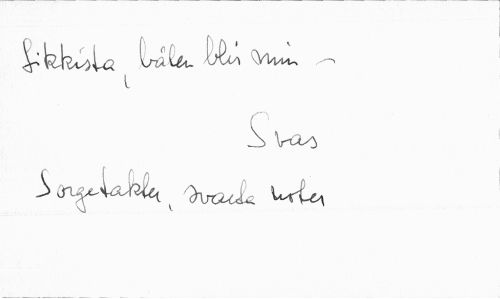 Likkista, bålen blir min –
Svas
Sorgetakter, svarta noter